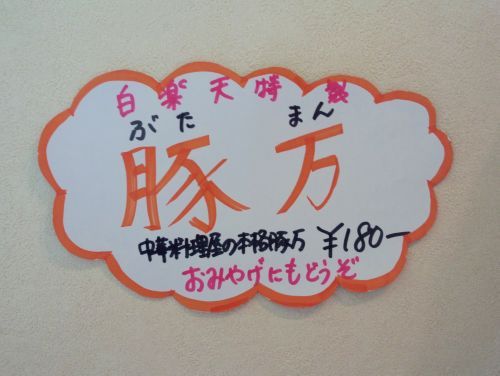 白楽天特製
ぶた まん
豚万
中華料理屋の本格豚万 ¥180-
おみやげにもどうぞ